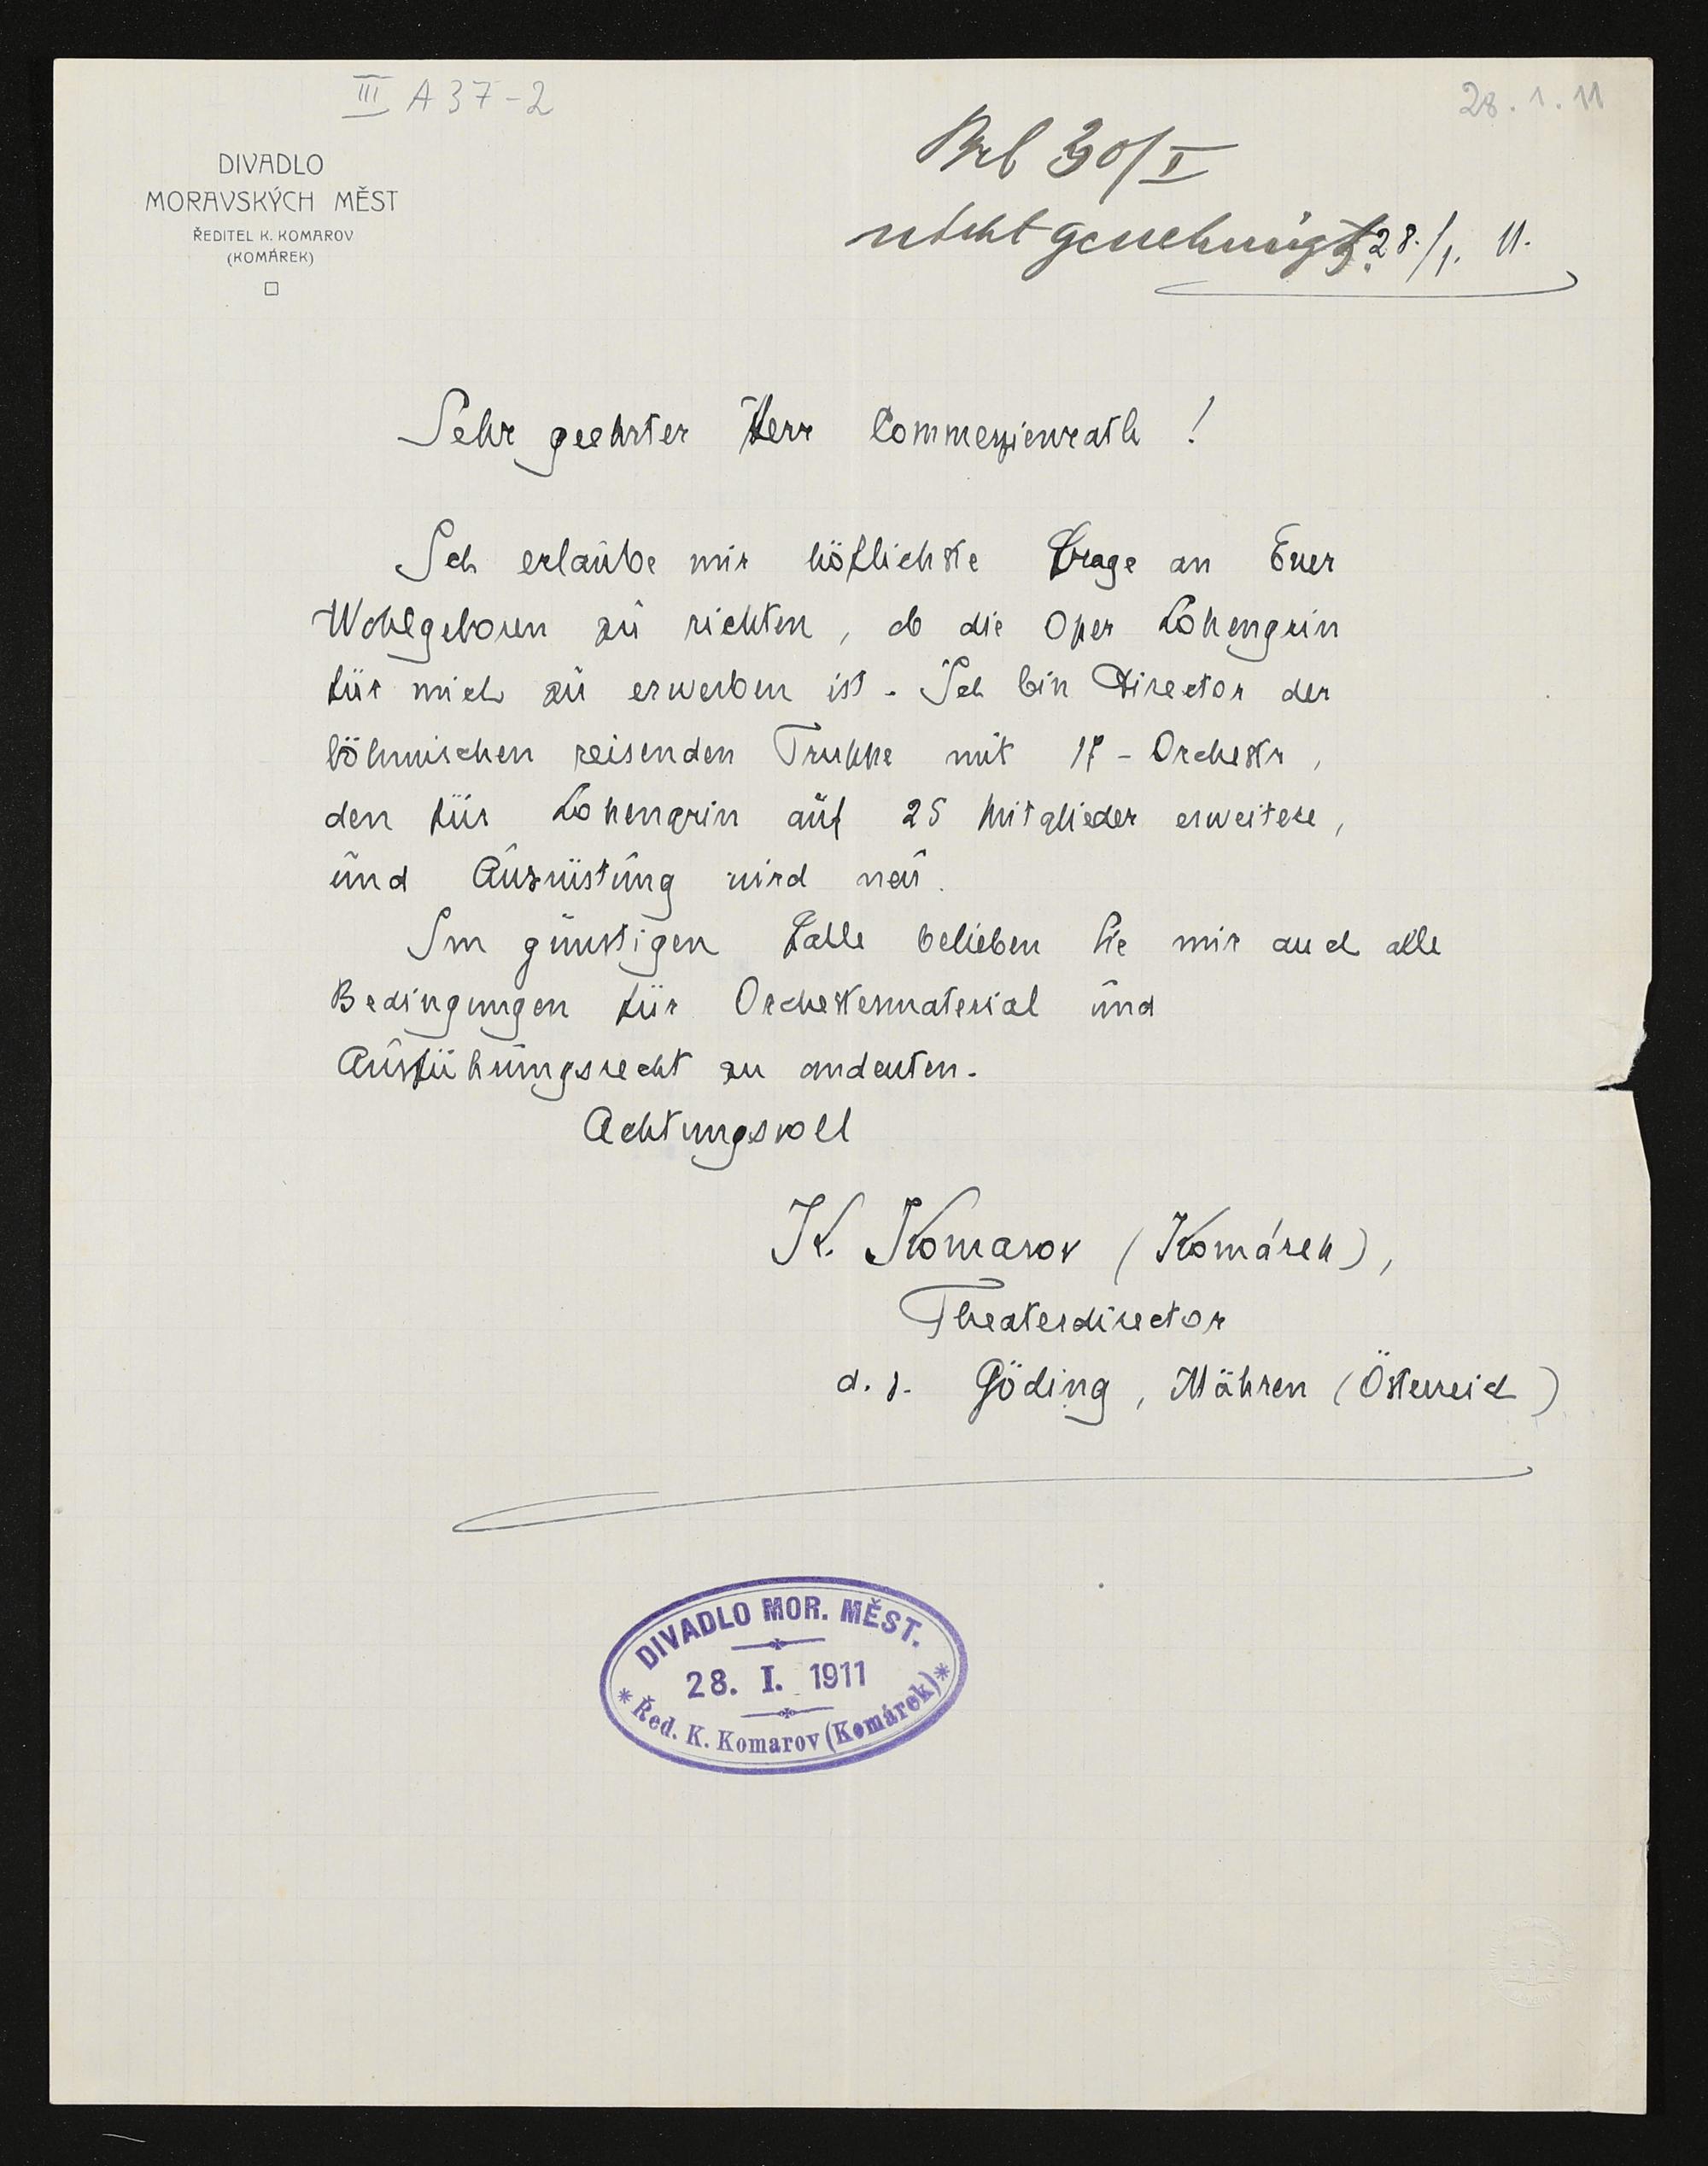 III A 37-2
28. 1. 11
DIVADLO
MORAVSKÝCH MĚST
ŘEDITEL K. KOMAROV
(KOMÁREK)
30/I
nicht genehmigt.
28./1. 11.
Sehr geehrter Herr Commerzienrath !
Ich erlaube mir höflichste Frage an Euer
Wohlgeboren zu richten, ob die Oper Lohengrin
für mich zu erwerben ist. Ich bin Director der
böhmischen reisenden Truppe mit - Orchestr,
den für Lohengrin auf 25 Mitglieder erweitere,
und Ausrüstung wird neu.
Im günstigen Falle belieben Sie mir auch alle
Bedingungen für Orchestermaterial und
Ausführungsrecht zu andeuten.
Achtungsvoll
K. Komarov (Komárek),
Theaterdirector
Göding, Mähren (Österreich)
DIVADLO MOR. MĚST.
28. I. 1911
* Řed. K. Komarov (Komárek) *